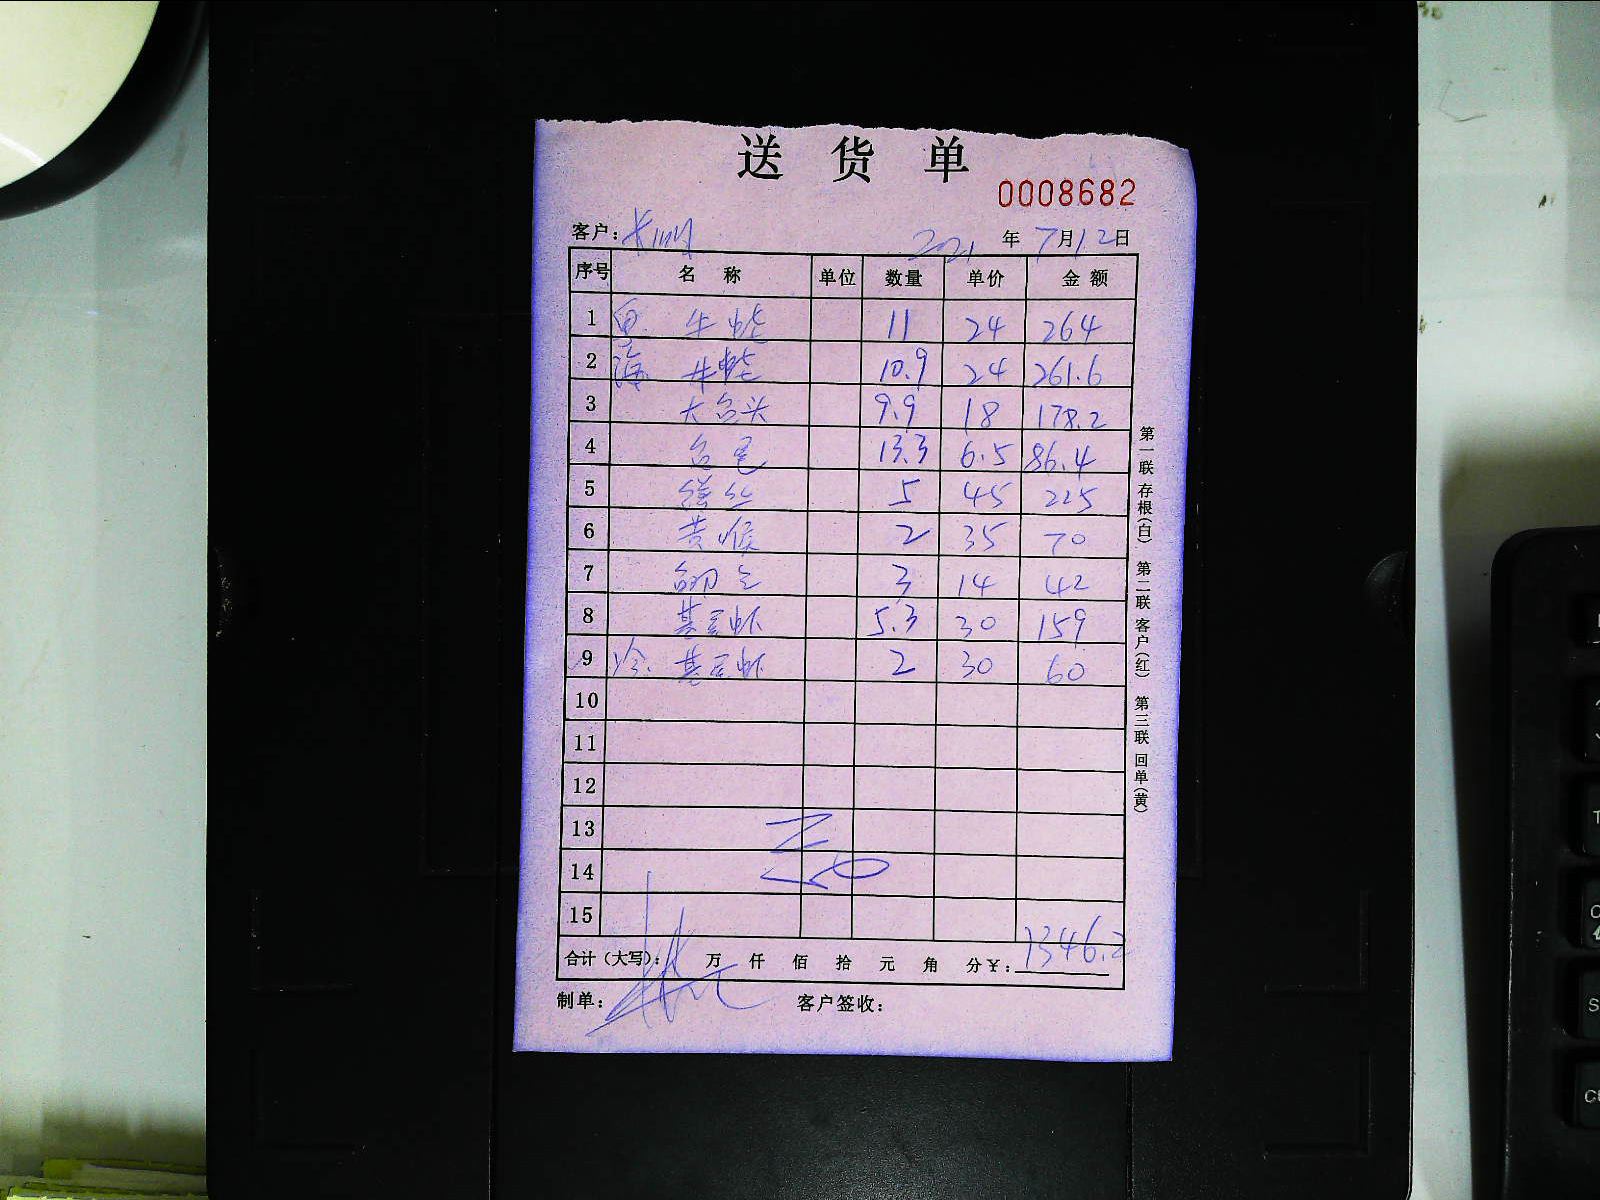 送货单
0008682
客户: 2021年7月12日
序号 名称 单位 数量 单价 金额
1 鱼 牛蛙 11 24 264
2 牛蛙 10.9 24 261.6
3 大鱼头 9.9 18 178.2
4 鱼尾 13.3 6.5 86.4
5 鳝丝 5 45 225
6 黄喉 2 35 70
7 3 14 42
8 基尾虾 5.3 30 159
9 冷 基尾虾 2 30 60
10
11
12
13
14
15
合计(大写): 万 仟 佰 拾 元 角 分¥: 1346.2
制单: 客户签收:
第一联 存根(白) 第二联 客户(红) 第三联 回单(黄)